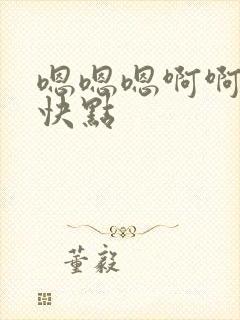 嗯嗯嗯啊啊
快點
董毅